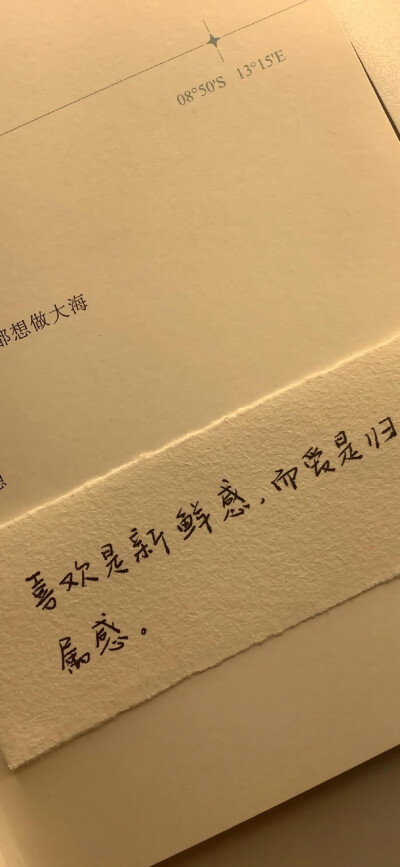 08°50'S 13°15'E
都想做大海
想
喜欢是新鲜感、而爱是归
属感。